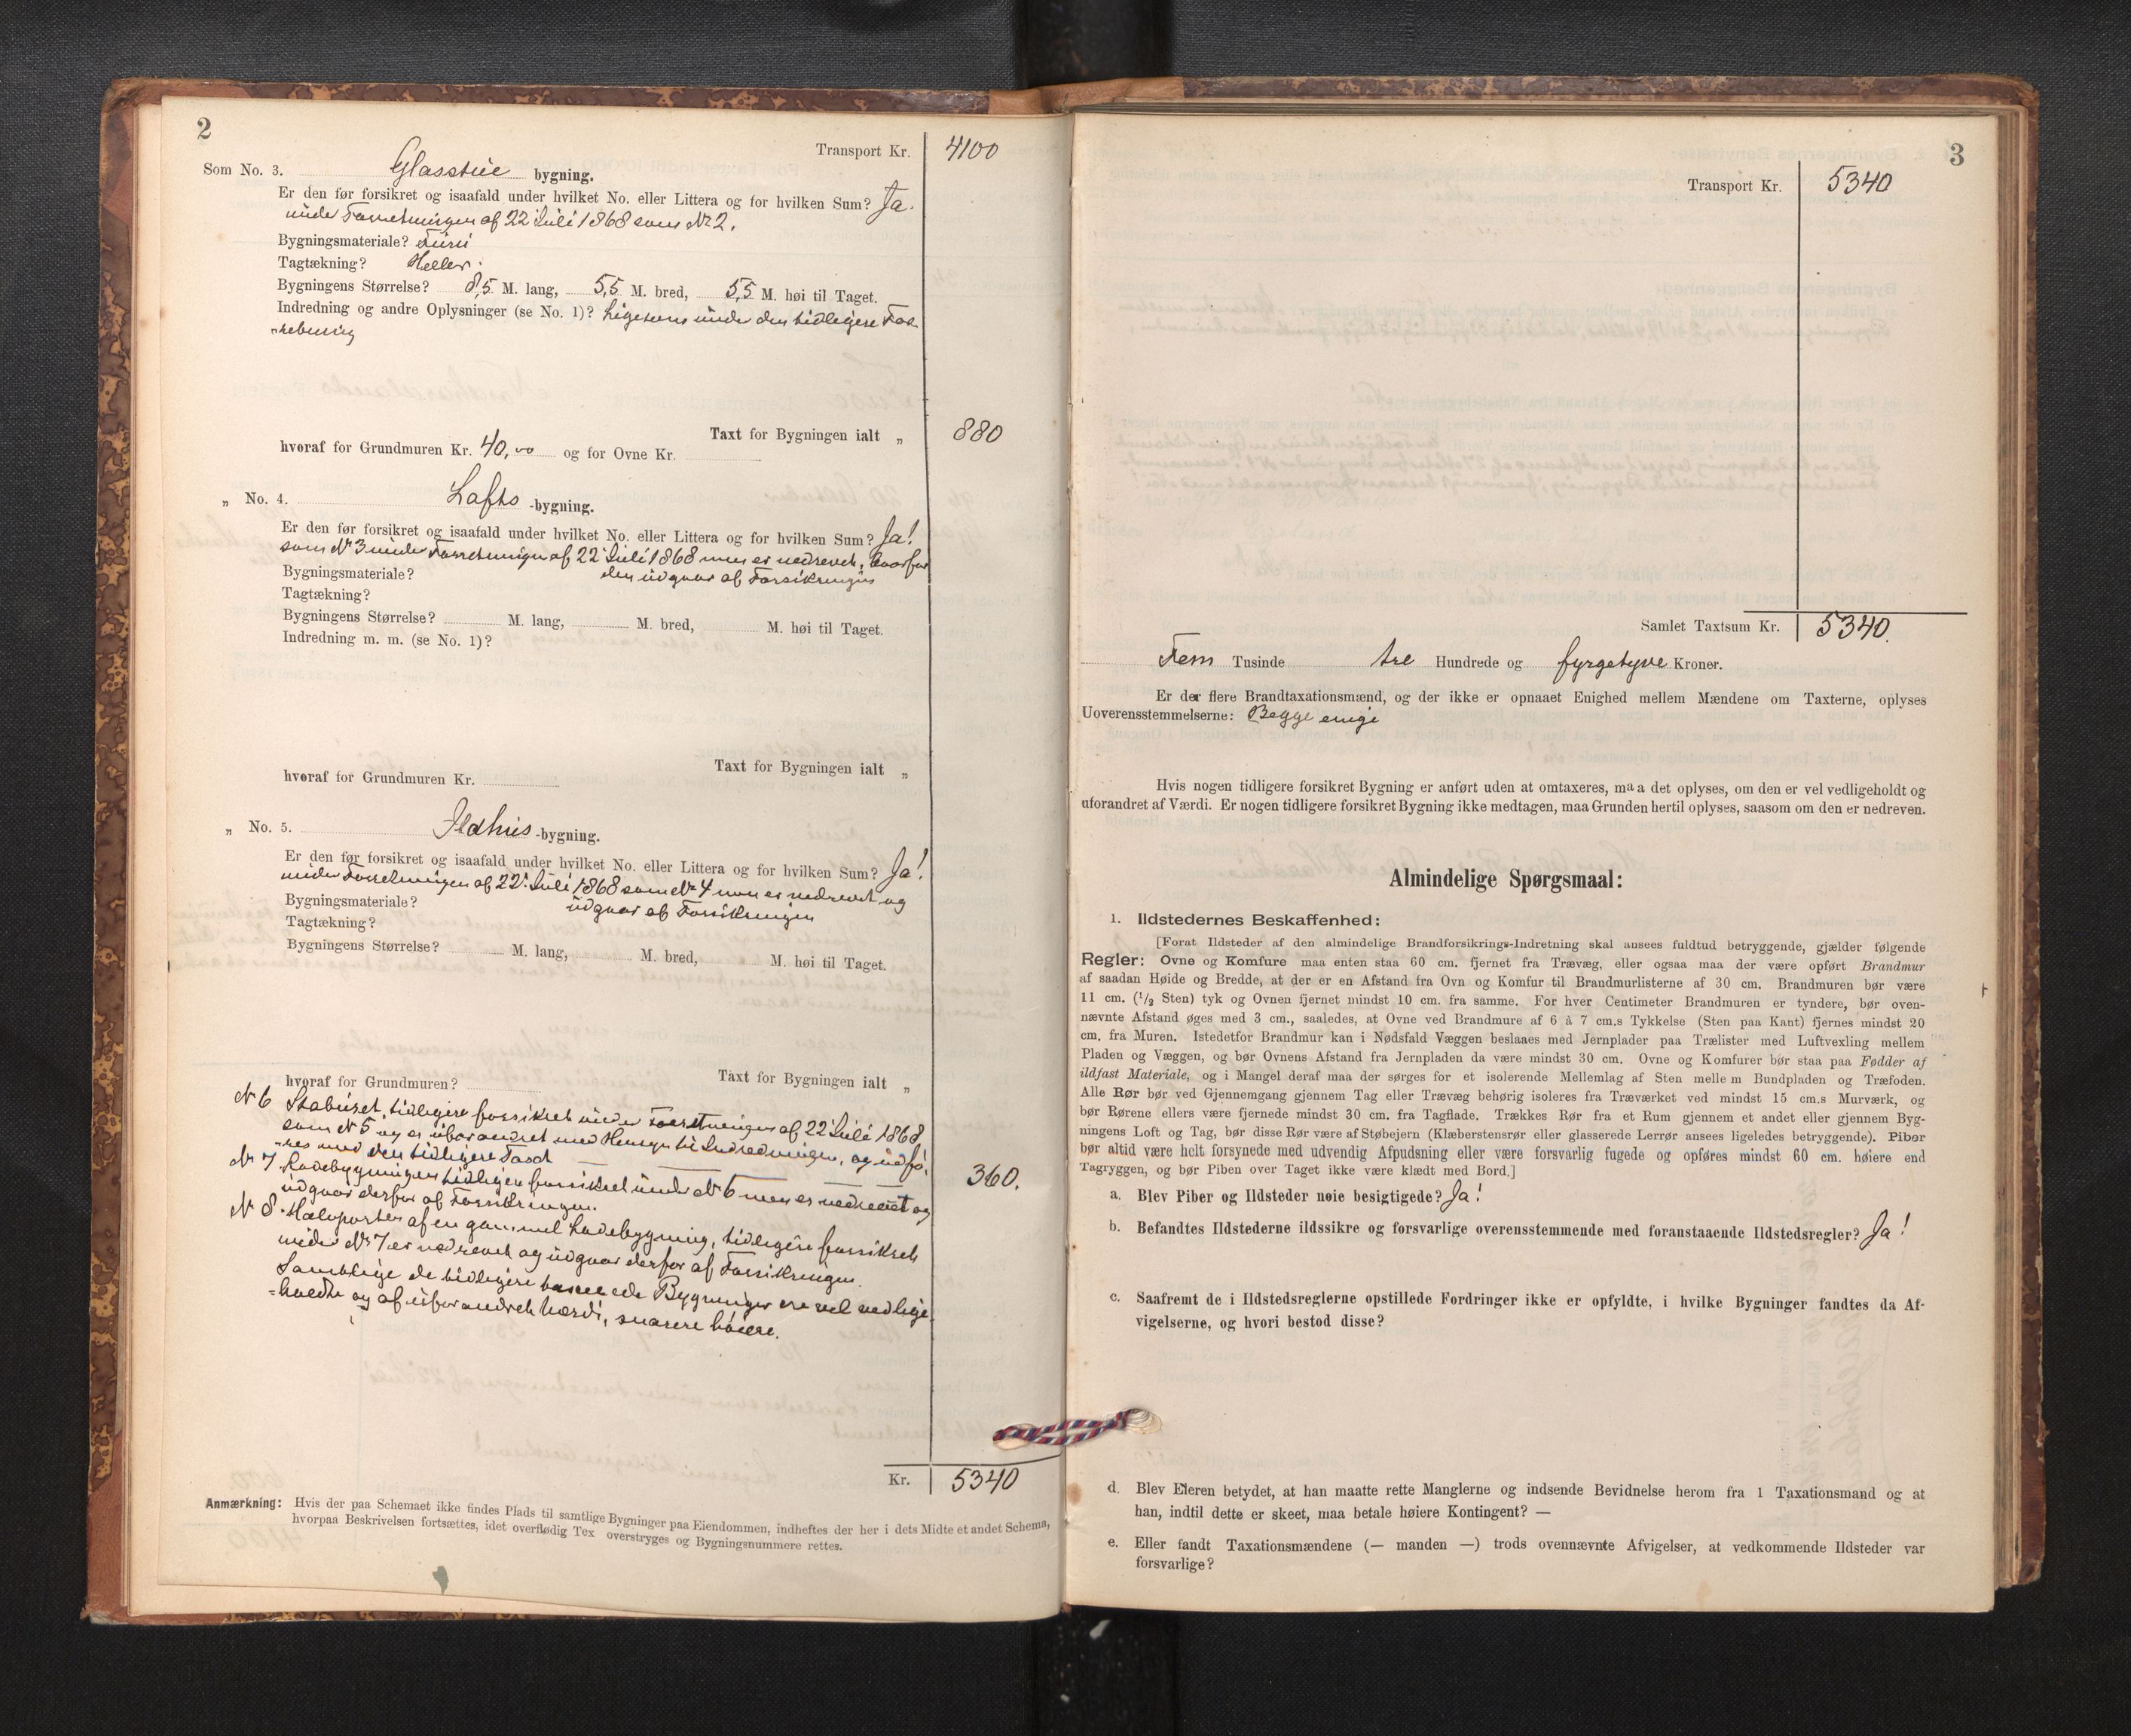 2
Transport Kr. 4100
Som No. 3. Glasstue bygning.
Er den før forsikret og isaafald under hvilket No. eller Littera og for hvilken Sum? Ja.
under Forretningen af 22 Juli 1868 som Nr 2.
Bygningsmateriale? Furu
Tagtækning? Heller.
Bygningens Størrelse? 8,5 M. lang, 5,5 M. bred, 5,5 M. høi til Taget.
Indredning og andre Oplysninger (se No. 1)? Ligesom under den tidligere For-
Taxt for Bygningen ialt „ 880
hvoraf for Grundmuren Kr. 40,00 og for Ovne Kr.
„ No. 4. Lofts -bygning.
Er den før forsikret og isaafald under hvilket No. eller Littera og for hvilken Sum? Ja!
som Nr 3 under Forretningen af 22 Juli 1868 men er nedrevet, hvorfor
den udgaar af Forsikringen
Bygningsmateriale?
Tagtækning?
Bygningens Størrelse? M. lang, M. bred, M. høi til Taget.
Indredning m. m. (se No. 1)?
Taxt for Bygningen ialt „
hvoraf for Grundmuren Kr.
„ No. 5. Ildhus -bygning.
Er den før forsikret og isaafald under hvilket No. eller Littera og for hvilken Sum? Ja!
under Forretningen af 22 Juli 1868 som Nr 4 men er nedrevet og
udgaar af Forsikringen
Bygningsmateriale?
Tagtækning?
Bygningens Størrelse? M. lang, M. bred, M. høi til Taget.
Taxt for Bygningen ialt „
hvoraf for Grundmuren?
Nr 6 Staburet, tidligere forsikret under Forretningen af 22 Juli 1868,
som Nr 5 og er uforandret med Hensyn til Indredningen, og udfø-
res med den tidligere Taxt 360.
Nr 7. Ladebygningen tidligere forsikret under Nr 6 men er nedrevet og
udgaar derfor af Forsikringen.
Nr 8. Halvparten af en gammel Ladebygning, tidligere forsikret
under Nr 7 er nedrevet og udgaar derfor af Forsikringen.
Samtlige de tidligere Bygninger ere vel vedlige-
holdte og af uforandret Værdi, snarere høiere.
Kr. 5340
Anmærkning: Hvis der paa Schemaet ikke findes Plads til samtlige Bygninger paa Eiendommen, indheftes der her i dets Midte et andet Schema,
hvorpaa Beskrivelsen fortsættes, idet overflødig Tex overstryges og Bygningsnummere rettes.
3
Transport Kr. 5340
Samlet Taxtsum Kr. 5340.
Fem Tusinde tre Hundrede og fyrgetyve Kroner.
Er der flere Brandtaxationsmænd, og der ikke er opnaaet Enighed mellem Mændene om Taxterne, oplyses
Uoverensstemmelserne: Begge enige
Hvis nogen tidligere forsikret Bygning er anført uden at omtaxeres, maa det oplyses, om den er vel vedligeholdt og
uforandret af Værdi. Er nogen tidligere forsikret Bygning ikke medtagen, maa Grunden hertil oplyses, saasom om den er nedreven.
Almindelige Spørgsmaal:
1. Ildstedernes Beskaffenhed:
[Forat Ildsteder af den almindelige Brandforsikrings-Indretning skal ansees fuldtud betryggende, gjælder følgende
Regler: Ovne og Komfure maa enten staa 60 cm. fjernet fra Trævæg, eller ogsaa maa der være opført Brandmur
af saadan Høide og Bredde, at der er en Afstand fra Ovn og Komfur til Brandmurlisterne af 30 cm. Brandmuren bør være
11 cm. (1/2 Sten) tyk og Ovnen fjernet mindst 10 cm. fra samme. For hver Centimeter Brandmuren er tyndere, bør oven-
nævnte Afstand øges med 3 cm., saaledes, at Ovne ved Brandmure af 6 à 7 cm.s Tykkelse (Sten paa Kant) fjernes mindst 20
cm. fra Muren. Istedetfor Brandmur kan i Nødsfald Væggen beslaaes med Jernplader paa Trælister med Luftvexling mellem
Pladen og Væggen, og bør Ovnens Afstand fra Jernpladen da være mindst 30 cm. Ovne og Komfurer bør staa paa Fødder af
ildfast Materiale, og i Mangel deraf maa der sørges for et isolerende Mellemlag af Sten mellem Bundpladen og Træfoden.
Alle Rør bør ved Gjennemgang gjennem Tag eller Trævæg behørig isoleres fra Træværket ved mindst 15 cm.s Murværk, og
bør Rørene ellers være fjernede mindst 30 cm. fra Tagflade. Trækkes Rør fra et Rum gjennem et andet eller gjennem Byg-
ningens Loft og Tag, bør disse Rør være af Støbejern (Klæberstensrør eller glasserede Lerrør ansees ligeledes betryggende). Piber
bør altid være helt forsynede med udvendig Afpudsning eller være forsvarlig fugede og opføres mindst 60 cm. høiere end
Tagryggen, og bør Piben over Taget ikke være klædt med Bord.]
a. Blev Piber og Ildsteder nøie besigtigede? Ja!
b. Befandtes Ildstederne ildssikre og forsvarlige overensstemmende med foranstaaende Ildstedsregler? Ja!
c. Saafremt de i Ildstedsreglerne opstillede Fordringer ikke er opfyldte, i hvilke Bygninger fandtes da Af-
vigelserne, og hvori bestod disse?
d. Blev Eieren betydet, at han maatte rette Manglerne og indsende Bevidnelse herom fra 1 Taxationsmand og at
han, indtil dette er skeet, maa betale høiere Kontingent? —
e. Eller fandt Taxationsmændene (— manden —) trods ovennævnte Afvigelser, at vedkommende Ildsteder var
forsvarlige?